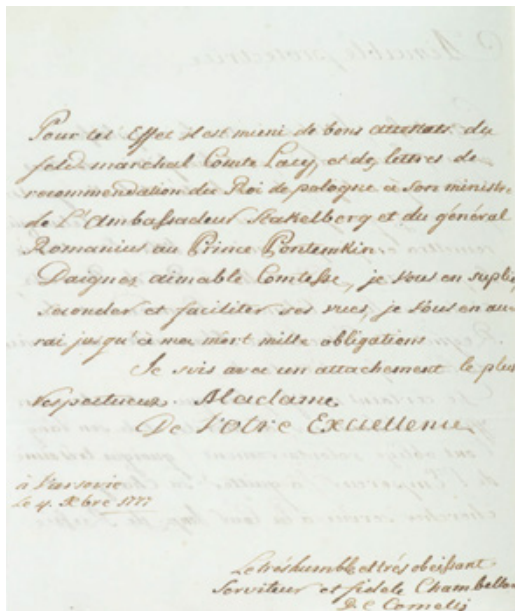 Pour cet Effet il est muni de bons attestats du
feld-marchal Comte Lacy, et des lettres de
recommendation du Roi de pologne a son ministre
de L'Ambassadeur Stakelberg et du général
Romanius au Prince Pontemkin.
Daignes aimable Comtesse, je vous en suplie
seconder et faciliter ses vues, je vous en au-
rai jusqu'a ma mort mille obligations
Je suis avec un attachement le plus
respectueux. Madame
De Votre Excellence
à Varsovie
Le 4. Xbre 1777
Le trés humble et trés obeissant
Serviteur et fidele Chambellan